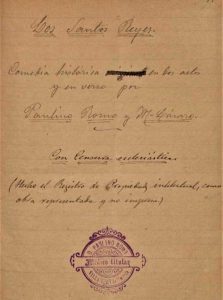 Los Santos Reyes.
Comedia histórica en dos actos
y en verso por
Paulino Romo y M. Lázaro.
Con Censura eclesiástica.
(Hecho el Registro de Propiedad intelectual, como
obra representada y no impresa.)
D. PAULINO ROMO
Médico titular